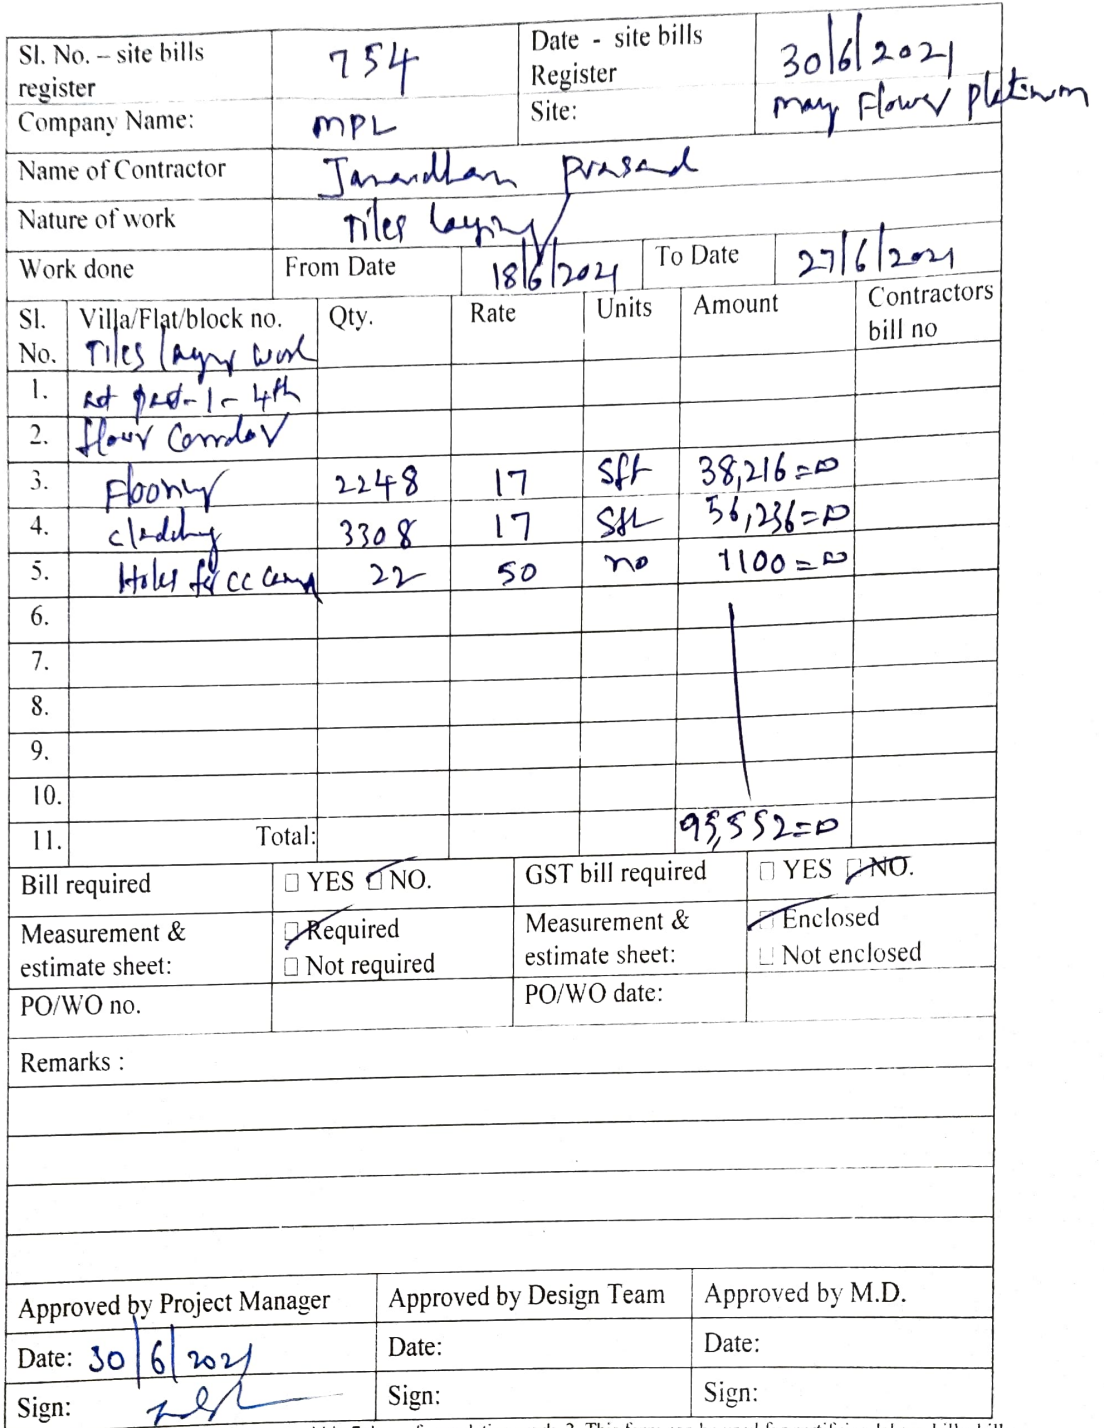 Sl. No. – site bills register 754 Date - site bills Register 30/6/2021
Company Name: MPL Site: may Flower Platinum
Name of Contractor Janardhan prasad
Nature of work Tiles laying
Work done From Date 18/6/2021 To Date 27/6/2021
Sl. No. Villa/Flat/block no. Qty. Rate Units Amount Contractors bill no
Tiles laying work
1. 1 - 4th
2. flour Corridor
3. Flooring 2248 17 sft 38,216=00
4. cladding 3308 17 sft 56,236=00
5. Holes for CC 22 50 no 1100=00
6.
7.
8.
9.
10.
11. Total: 95,552=00
Bill required □ YES □ NO. GST bill required □ YES □ NO.
Measurement & estimate sheet: □ Required □ Not required Measurement & estimate sheet: □ Enclosed □ Not enclosed
PO/WO no. PO/WO date:
Remarks :
Approved by Project Manager Approved by Design Team Approved by M.D.
Date: 30/6/2021 Date: Date:
Sign: Sign: Sign: